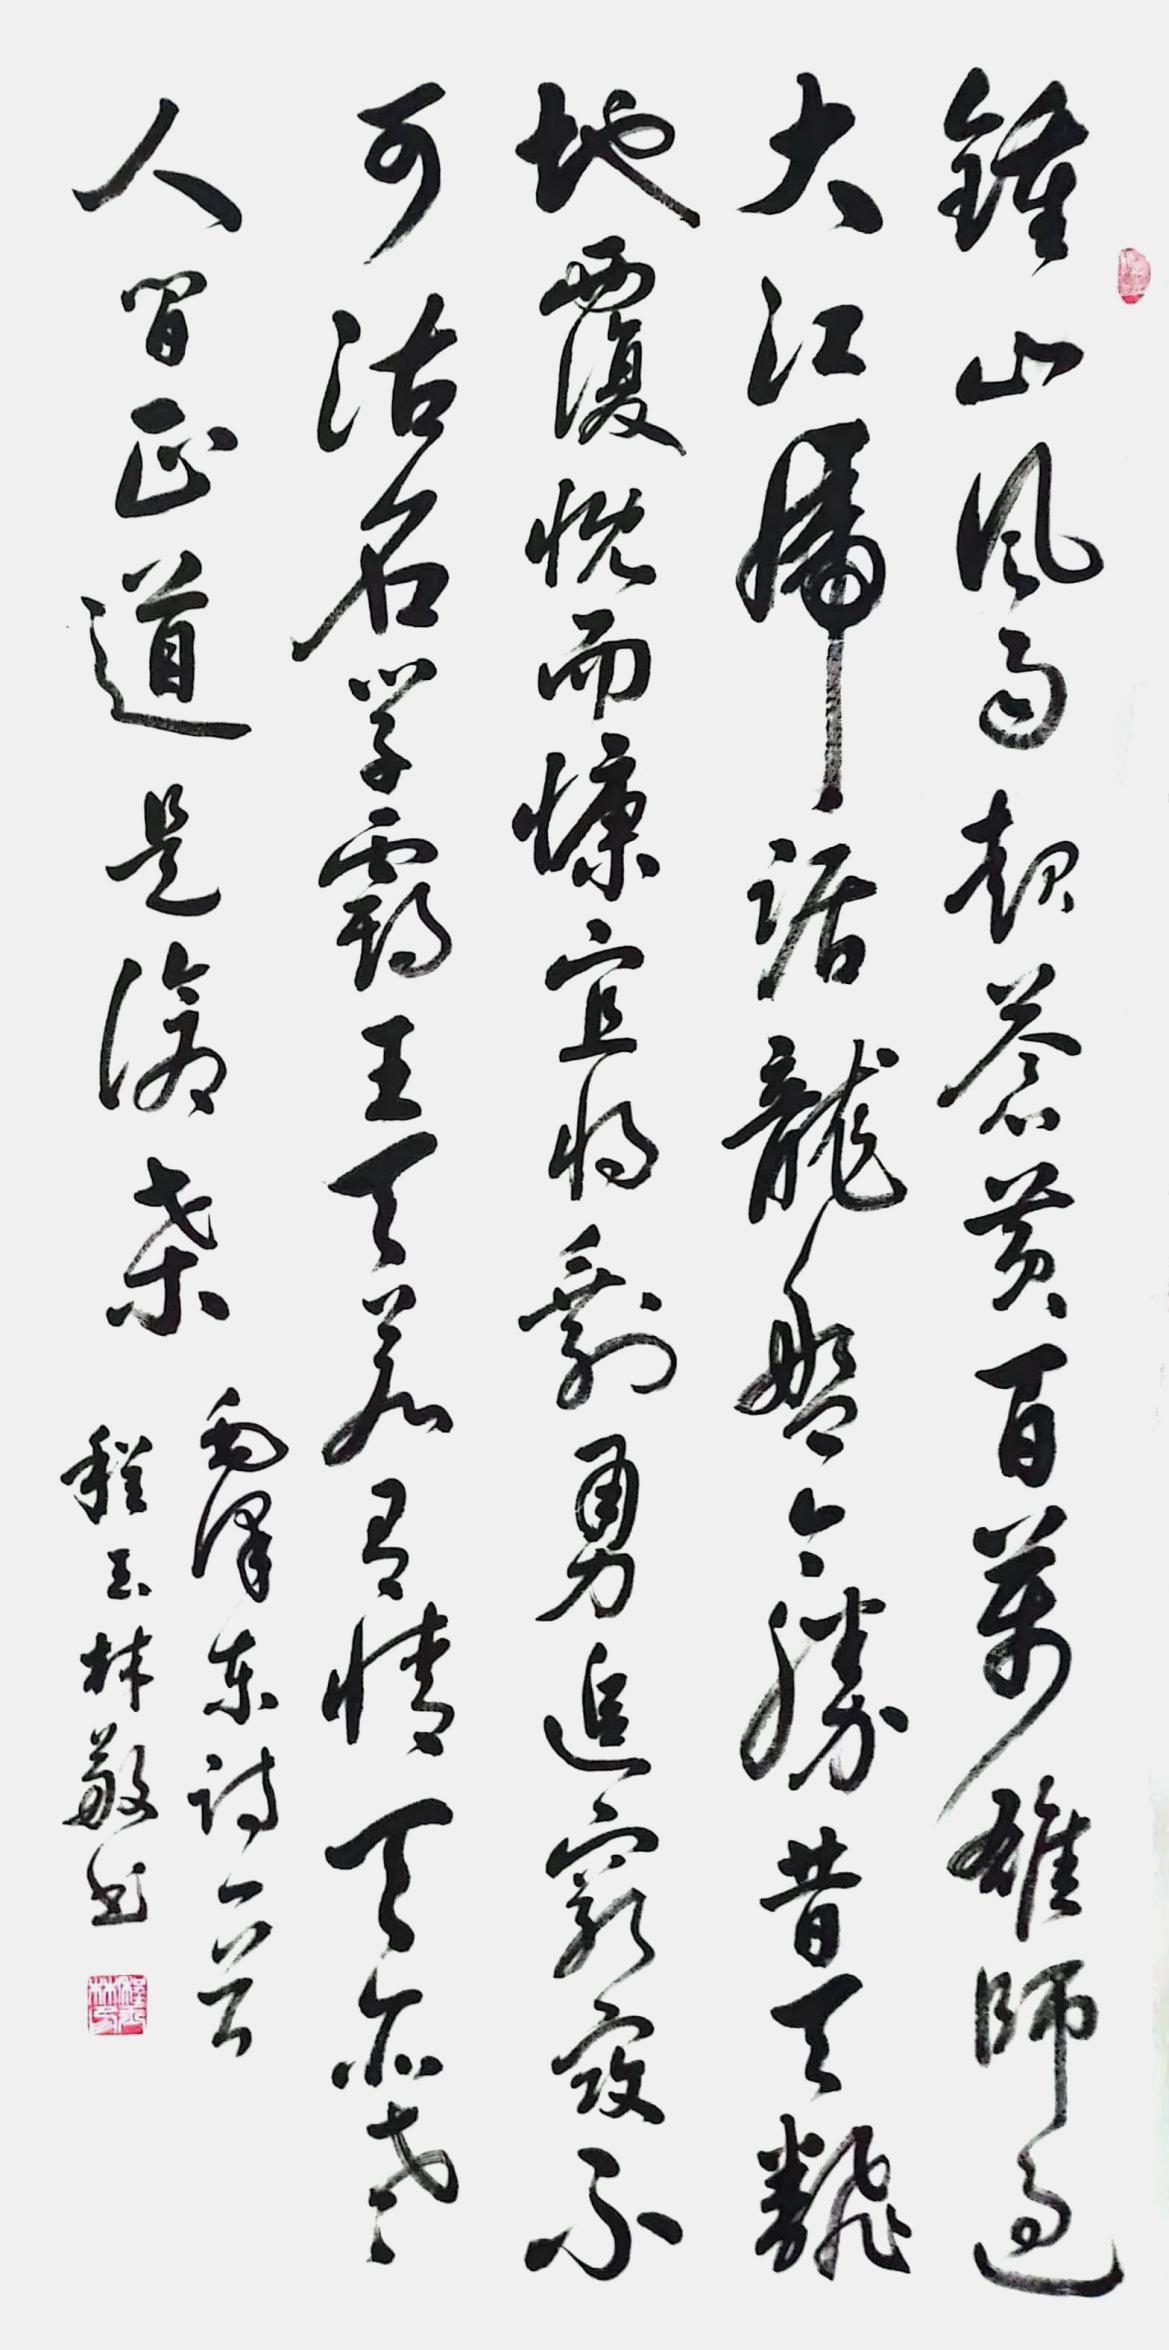 鍾山風雨起蒼黃百萬雄師過
大江虎踞龍盤今勝昔天翻
地覆慨而慷宜將剩勇追窮寇不
可沽名學霸王天若有情天亦老
人間正道是滄桑
毛澤東詩一首
程玉林敬书